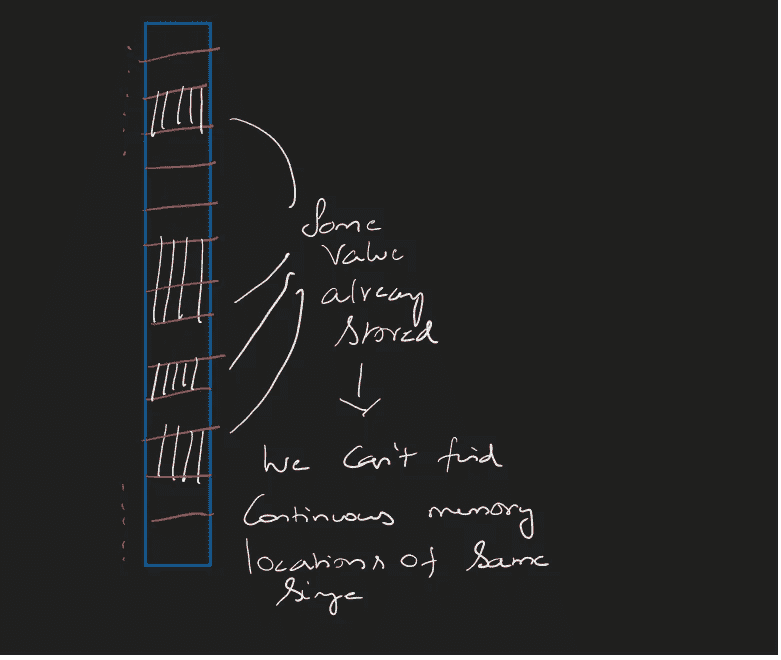 Some
Value
already
Stored
We Can't find
Continuous memory
locations of Same
Size